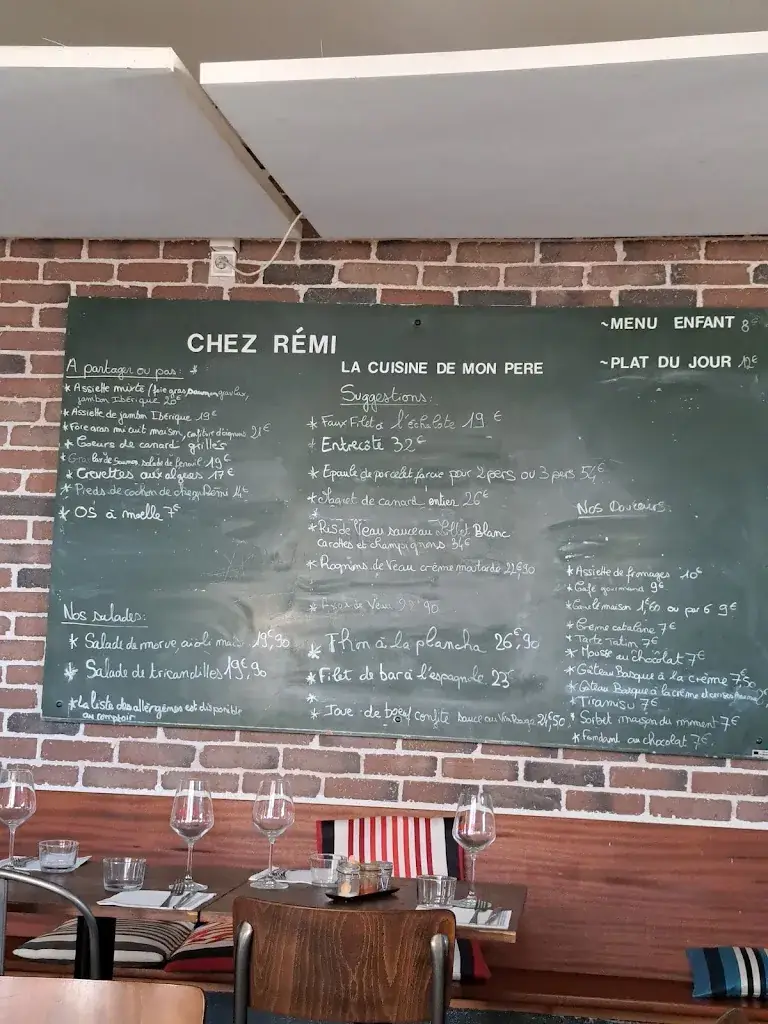 CHEZ RÉMI
LA CUISINE DE MON PERE
~MENU ENFANT 8€
~PLAT DU JOUR 12€
A partager ou pas:
* Assiette mixte / foie gras, gravlax,
jambon Ibérique
* Assiette de jambon Ibérique 19€
* Foie gras mi cuit maison, confiture d'oignons 21€
* Coeurs de canard grillés
* saumon salade de fenouil 19€
* Crevettes aux algues 17€
* Pieds de cochon de chez Rémi 14€
* OS à moelle 7€
Nos salades:
* Salade de morue, aïoli maison 19,90
* Salade de tricandilles 19€,90
* La liste des allergènes est disponible
au comptoir
Suggestions:
* Faux Filet à l'échalote 19€
* Entrecôte 32€
* Epaule de porcelet farcie pour 2 pers ou 3 pers
* Magret de canard entier 26€
*
* Ris de Veau sauce au Lillet Blanc
carottes et champignons 34€
* Rognons de Veau crème moutarde 22€90
* Thon à la plancha 26€,90
* Filet de bar à l'espagnole 23€
*
* Joue de boeuf confite sauce au Vin Rouge 24€,50
Nos Douceurs:
* Assiette de fromages 10€
* Café gourmand 9€
* Canelé maison 1€60 ou par 6 9€
* Crème catalane 7€
* Tarte Tatin 7€
* Mousse au chocolat 7€
* Gâteau Basque à la crème 7€50
* Gâteau Basque à la crème et cerises
* Tiramisu 7€
* Sorbet maison du moment 7€
* Fondant au chocolat 7€